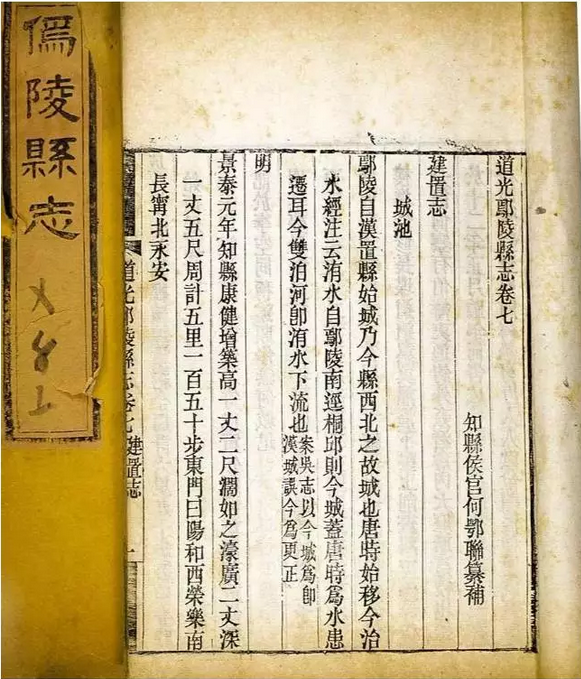 道光鄢陵縣志卷七
知縣侯官何鄂聯纂補
建置志
城池
鄢陵自漢置縣始城乃今縣西北之故城也唐時始移今治
水經注云洧水自鄢陵南逕桐邱則今城蓋唐時爲水患
遷耳今雙洎河卽洧水下流也
案吳志以今城爲卽
漢城誤今爲更正
明
景泰元年知縣康健增築高一丈二尺濶如之濠廣二丈深
一丈五尺周計五里一百五十步東門曰陽和西榮樂南
長甯北永安
道光鄢陵縣志卷七 建置志 一
傿陵縣志